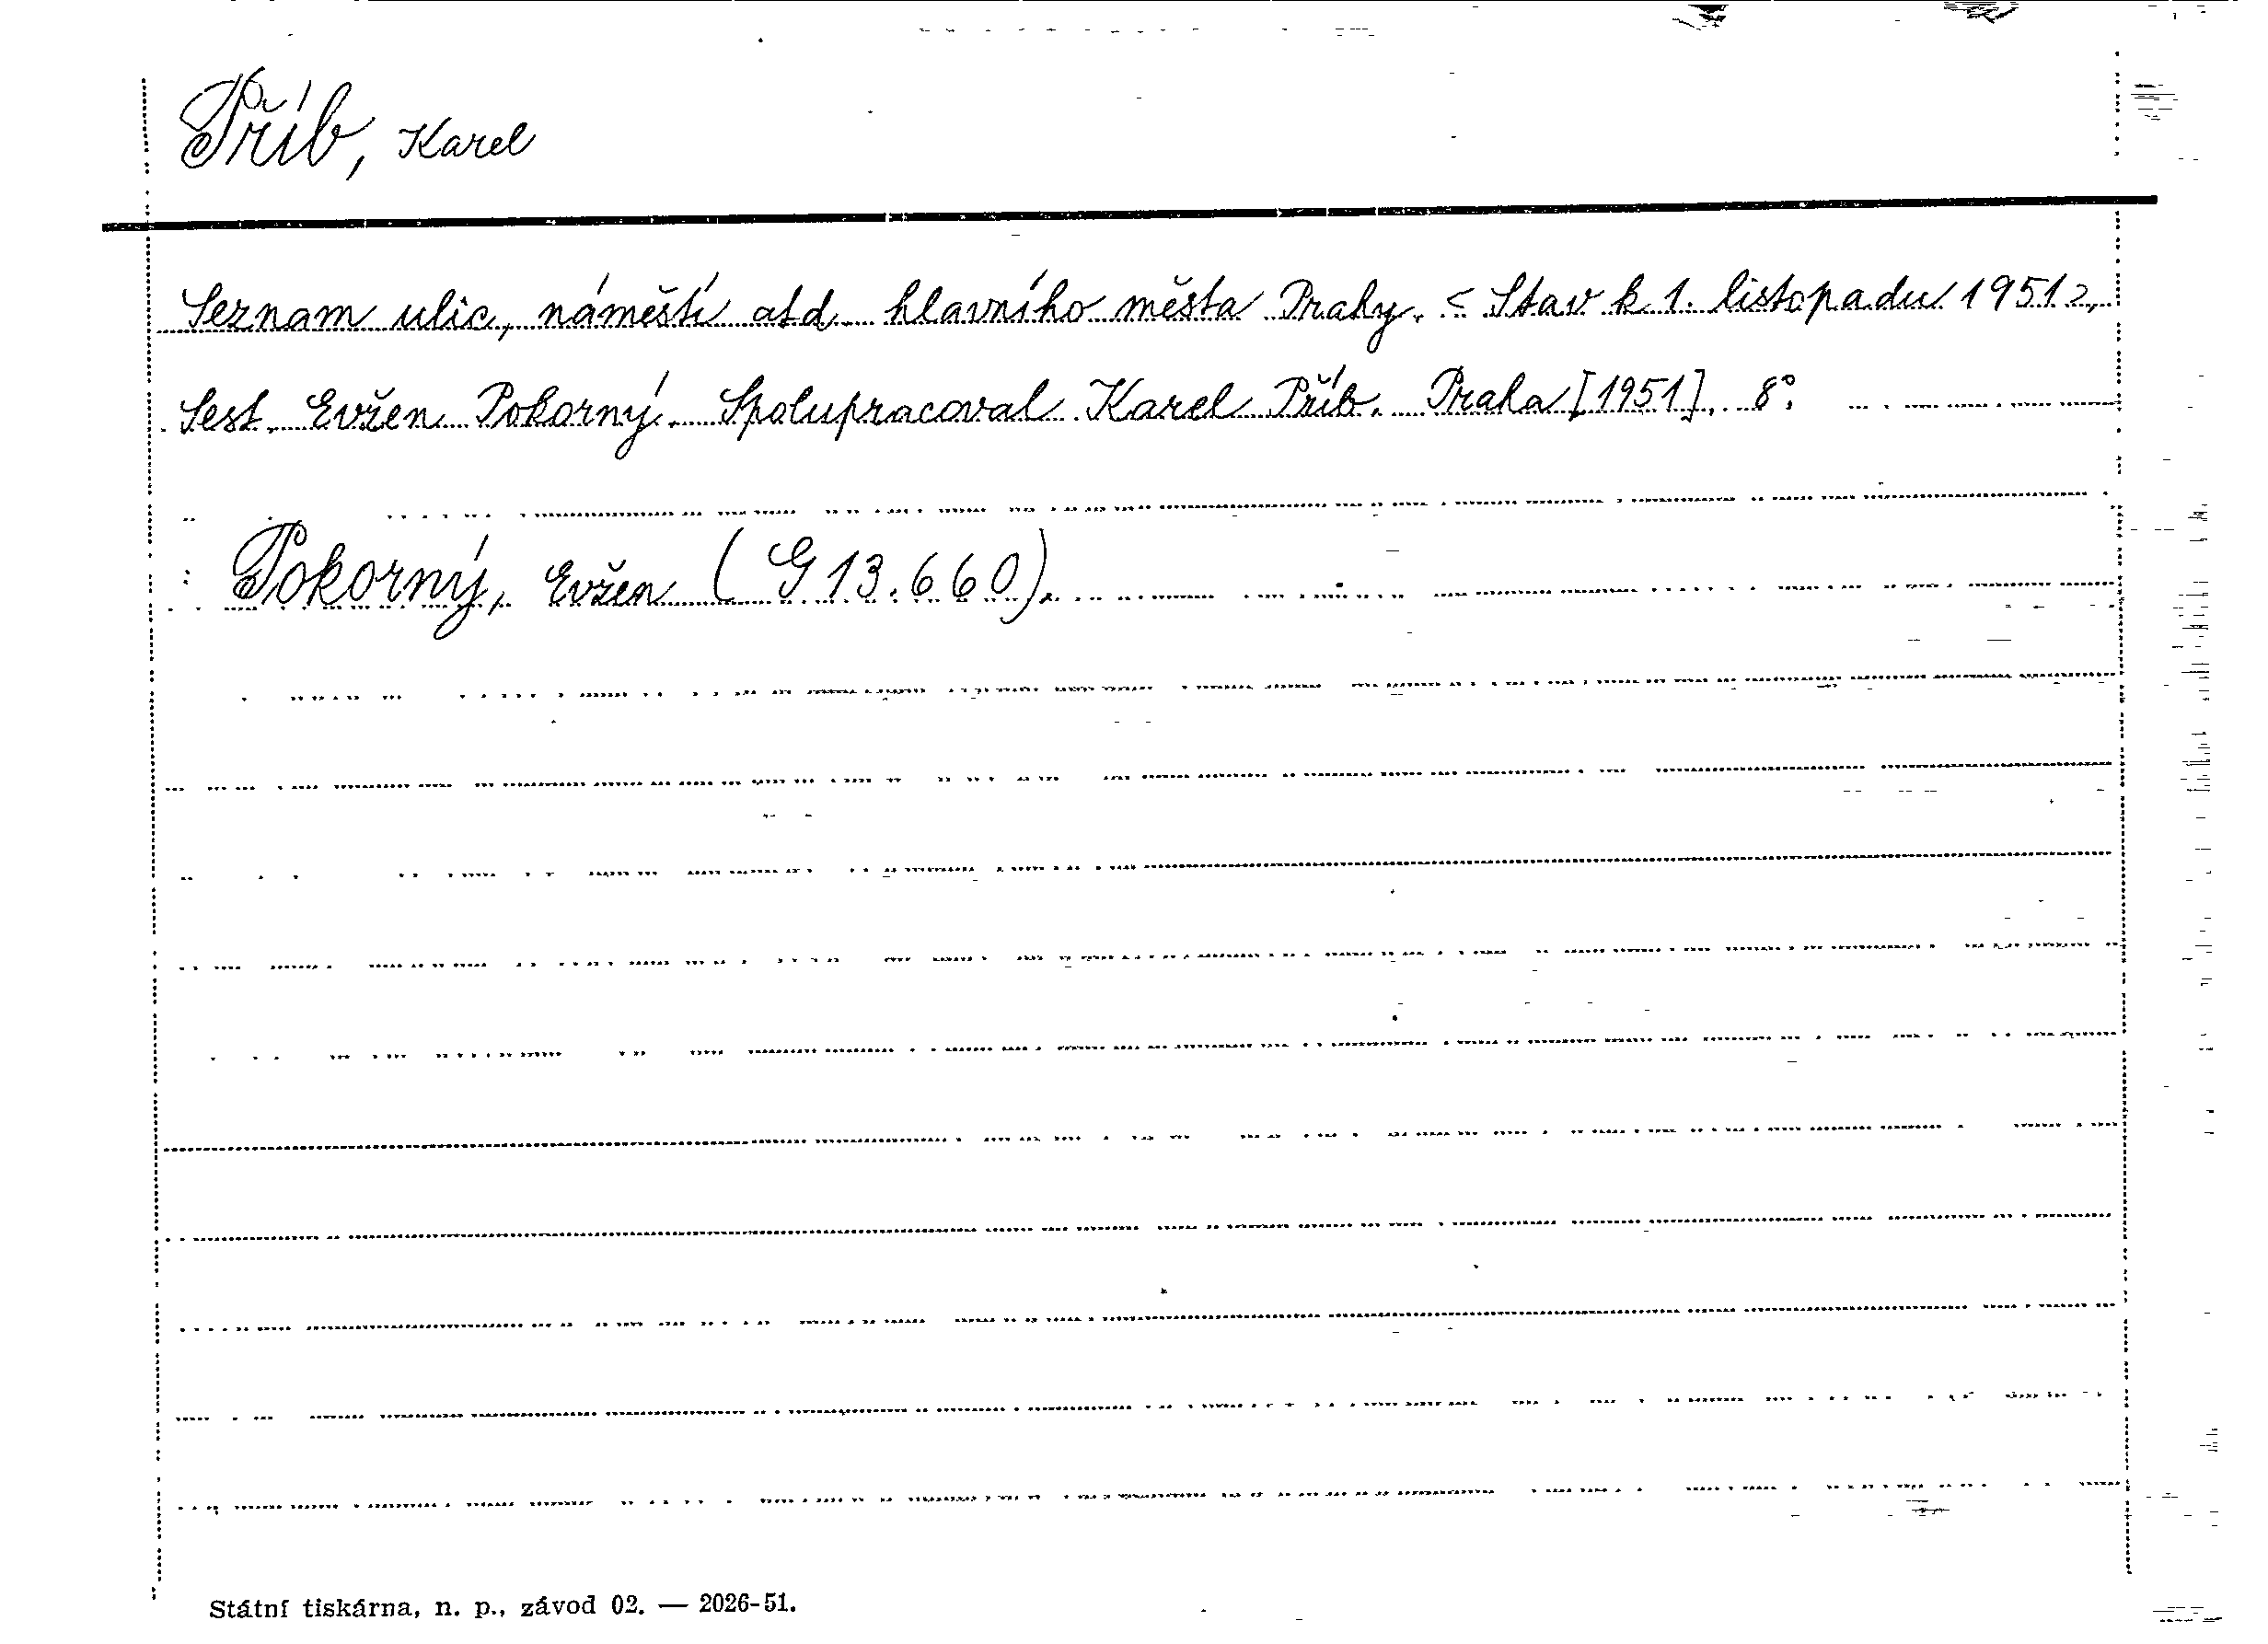 Příb, Karel
Seznam ulic, náměstí atd. hlavního města Prahy. < Stav k 1. listopadu 1951 >,
Sest. Evžen Pokorný. Spolupracoval Karel Příb. Praha [1951]. 8°.
: Pokorný, Evžen (G 13.660).
Státní tiskárna, n. p., závod 02. — 2026-51.